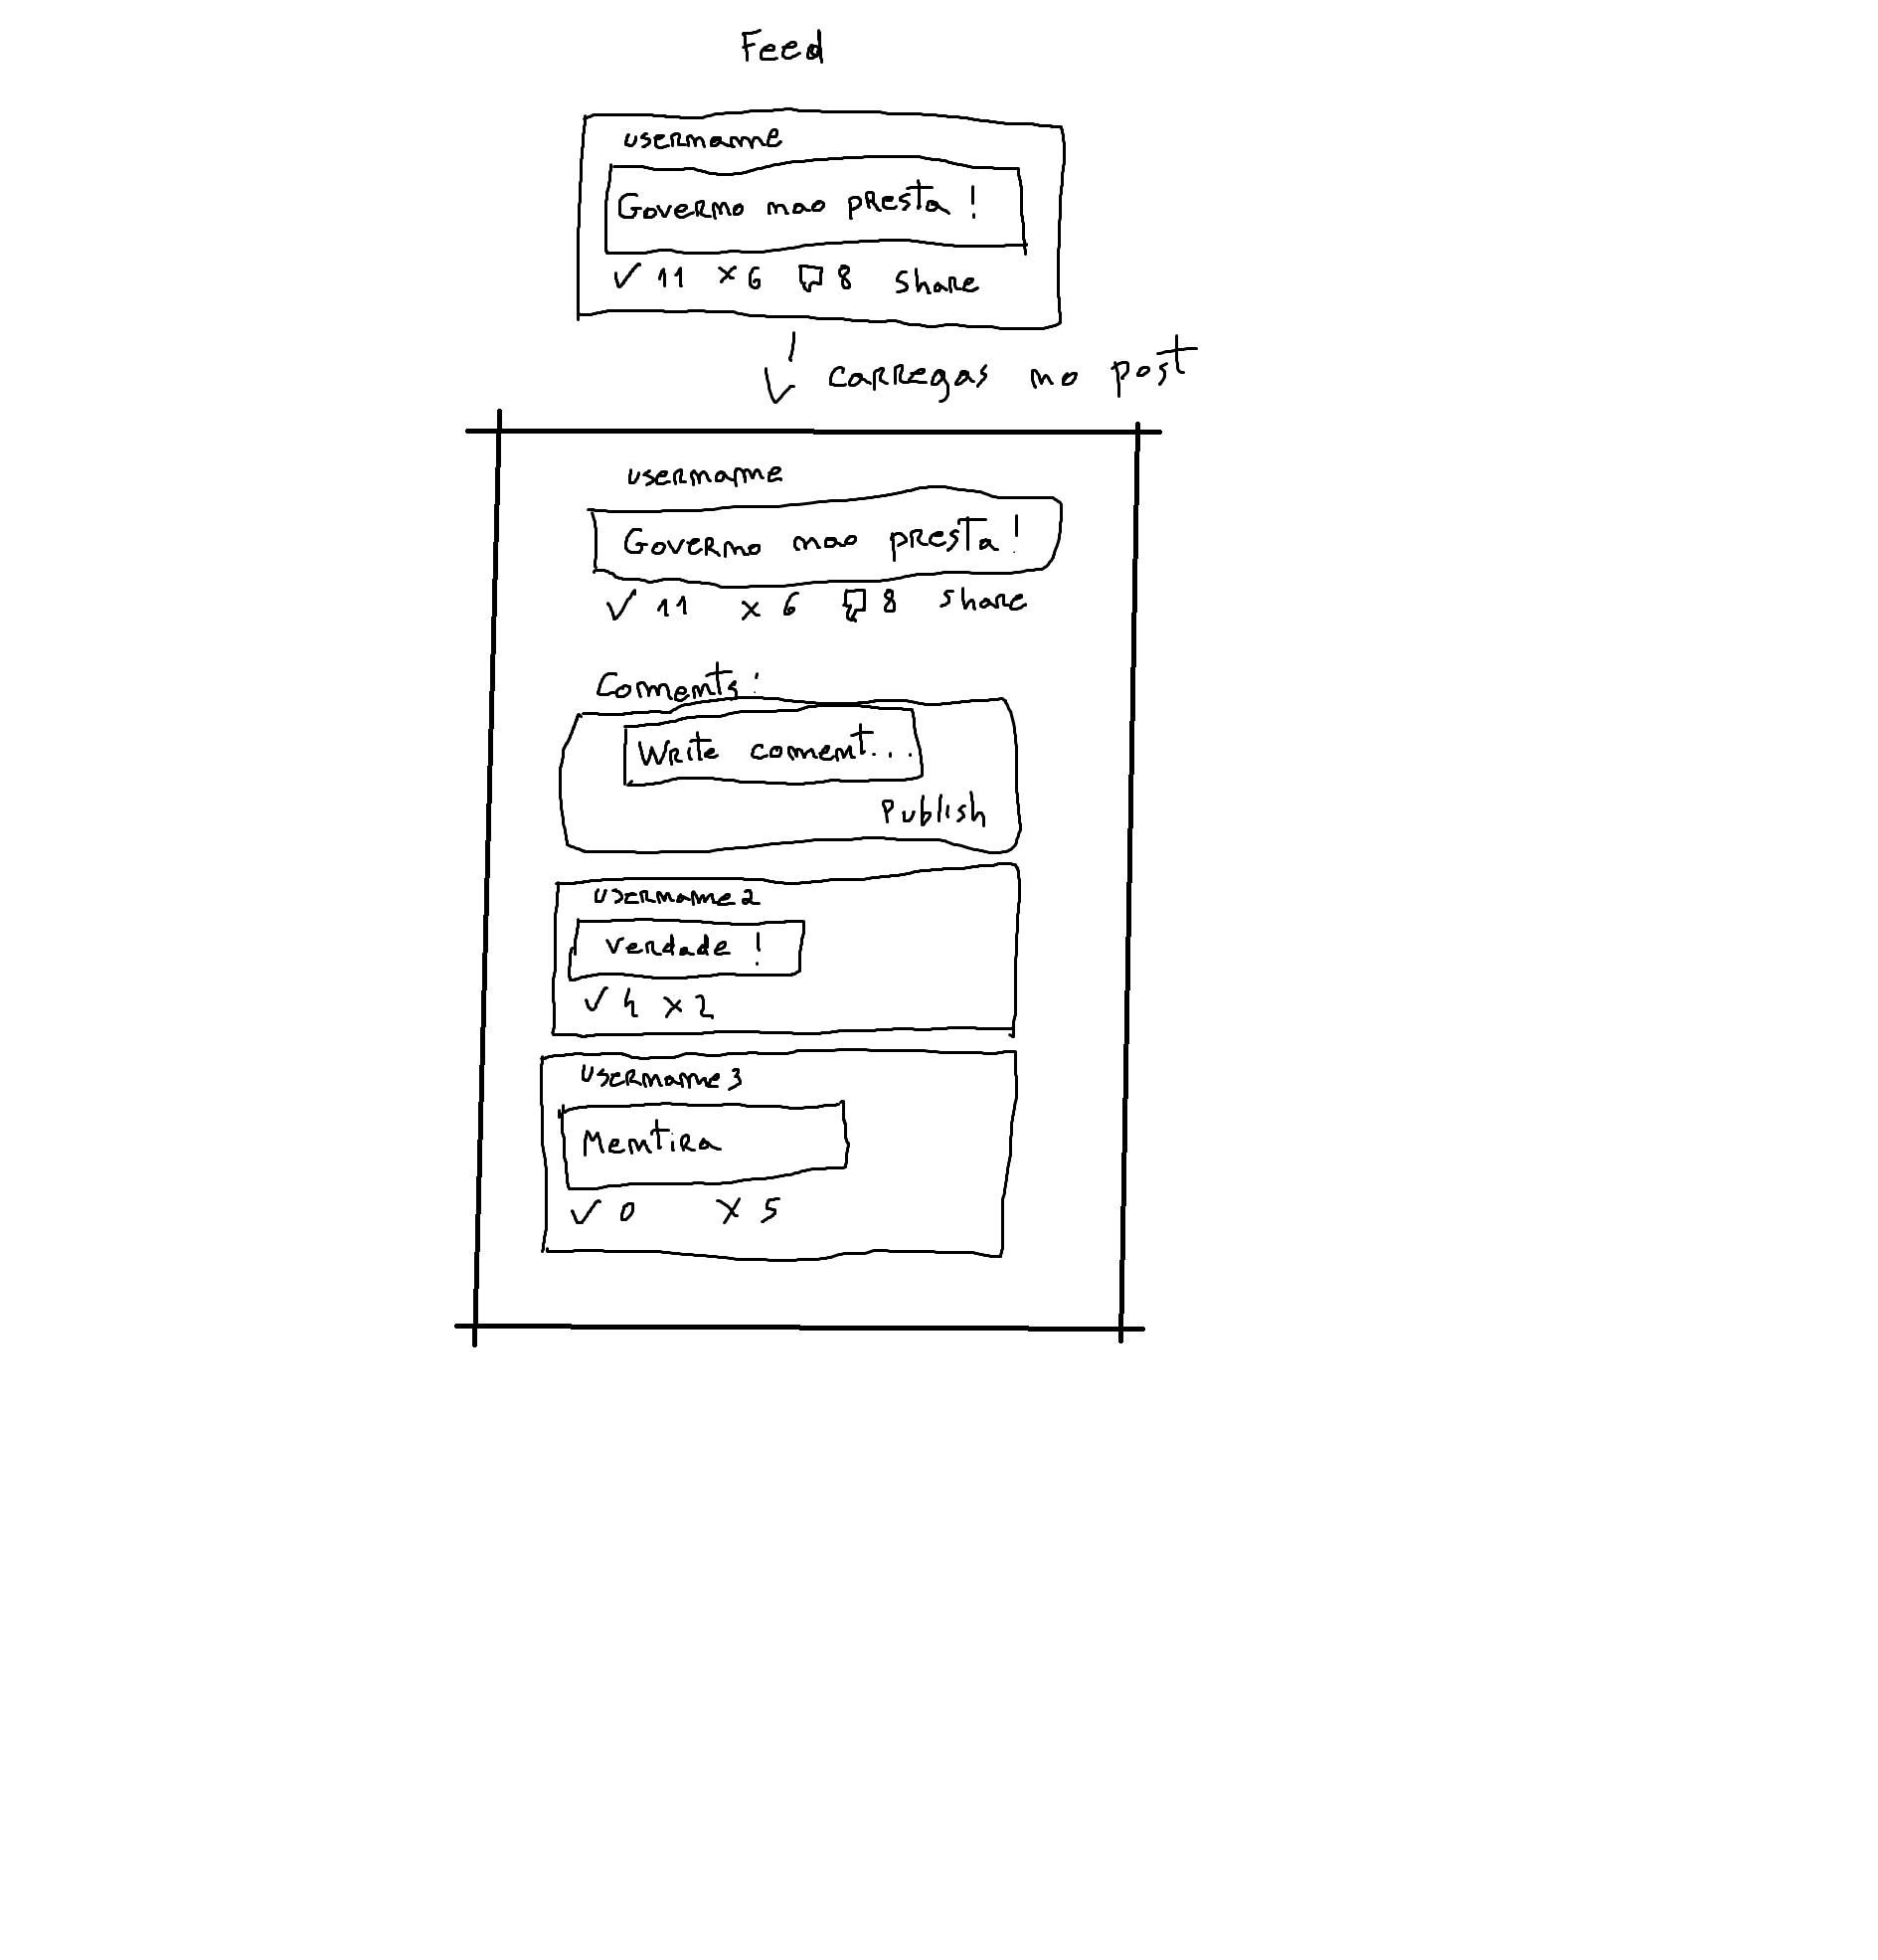 Feed
username
Governo nao presta !
✓ 11 × 6 8 share
carregas no post
username
Governo nao presta !
✓ 11 × 6 8 share
Coments:
Write coment...
Publish
username2
verdade !
✓ 4 × 2
username3
Mentira
✓ 0 × 5